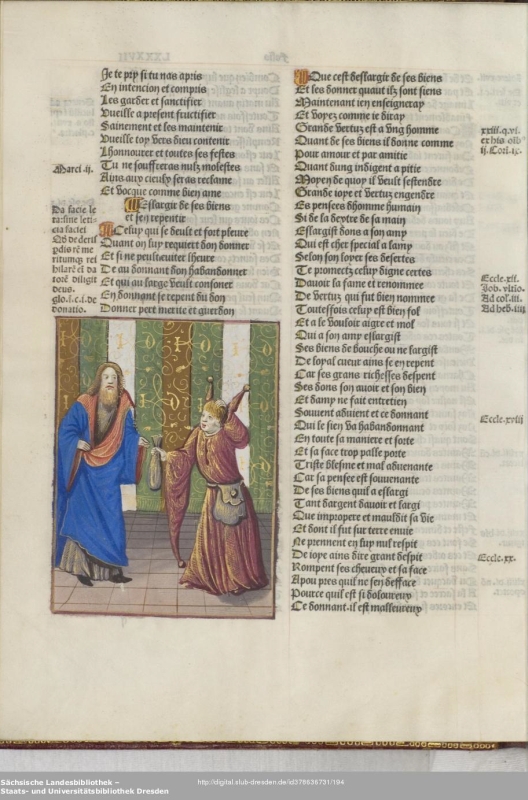 Je te pry si tu nas apris
En intencion et compris
Les garder et sanctifier
Vueille a present fructifier
Sainement et les maintenir
Vueille toy vers dieu contenir
Lhonnourer et toutes ses festes
Tu ne souffreras nulz molestes
Ains aux cieulx seras reclame
Et vocque comme bien ame
Marci .ij.
Eslargir de ses biens
et sen repentir
Celuy qui se deult et fort pleure
Quant on luy requiert don donner
Et si ne peult veiller lheure
De au donnant don habandonner
Et qui au large veult consoner
En donnant se repent du don
Donner pert merite et guerdon
Que cest deslargir de ses biens
Et les donner quant ilz sont siens
Maintenant ien enseigneray
Et voyez comme ie diray
Grande vertuz est a ung homme
Quant de ses biens il donne comme
Pour amour et par amitie
Quant dung indigent a pitie
Moyen de quoy il veult sestendre
Grande ioye et vertuz engendre
Es pensees dhomme humain
Si de sa dextre de sa main
Eslargist dons a son amy
Qui est cher special a lamy
Selon son loyer ses desertes
Te prometz celuy digne certes
Davoir la fame et renommee
De vertuz qui fut bien nommee
Toutesfois celuy est bien fol
Et a le vouloir aigre et mol
Qui a son amy eslargist
Ses biens de bouche ou ne largist
De loyal cueur ains se en repent
Car ses grans richesses despent
Ses dons son avoir et son bien
Et damp ne fait entretien
Souvent advient et ce donnant
Qui le sien va habandonnant
En toute sa maniere et sorte
Et sa face trop palle porte
Triste blesme et mal advenante
Car sa pensee est souvenante
De ses biens quil a eslargi
Tant dargent davoir et largi
Que impropere et mauldit sa vie
Et dont il fut sur terre envie
Ne prennent en luy nul respit
De ioye ains dire grant despit
Rompent ses cheveux et sa face
Apou pres quil ne sen desface
Pource quil est si doloureux
Ce donnant. il est malheureux
xxiii.q.vi.
Eccle.xii.
Job. vltio.
Ad col.iii.
Ad heb.iiij
Eccle.xviij
Eccle.xx.
Sächsische Landesbibliothek –
Staats- und Universitätsbibliothek Dresden
http://digital.slub-dresden.de/id378636731/194